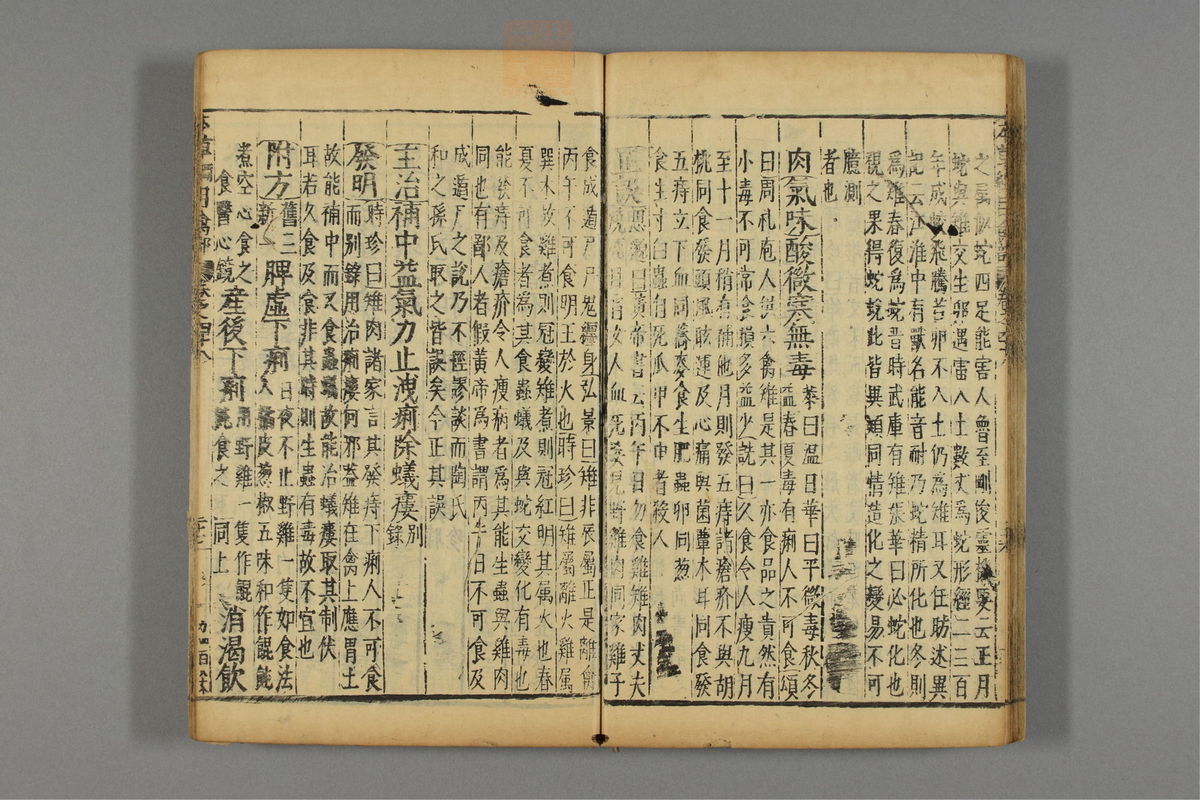 之屬似蛇四足能害人魯至剛俊靈機要云正月
蛇與雉交生卵遇雷入土數丈爲蛇形經二三百
年成蛟飛騰若卵不入土仍為雉耳又任昉述異
記云江淮中有獸名能音耐乃蛇精所化也冬則
爲雉春復爲蛇晉時武庫有雉張華曰必蛇化也
視之果得蛇蛻此皆異類同情造化之變易不可
臆測
者也
肉氣味酸微寒無毒恭曰温日華曰平微毒秋冬
益春夏毒有痢人不可食頌
曰周礼庖人共六禽雉是其一亦食品之貴然有
小毒不可常食損多益少詵曰久食令人瘦九月
至十一月稍有補他月則發五痔諸瘡疥不與胡
桃同食發頭風眩運及心痛與菌蕈木耳同食發
五痔立下血同蕎麥食生肥蟲卵同葱
食生寸白蟲自死爪甲不申者殺人
正誤思邈曰黃帝書云丙午日勿食雞雉肉丈夫
食成遁尸尸鬼纏身弘景曰雉非辰屬正是離禽
丙午不可食明王於火也時珍曰雉屬離火雞屬
巽木故雞煮則冠變雉煮則冠紅明其属火也春
夏不可食者為其食蟲蟻及與蛇交變化有毒也
能發痔及瘡疥令人瘦病者爲其能生蟲與雞肉
同也有鄙人者假黃帝爲書謂丙午日不可食及
成遁尸之說乃不經謬談而陶氏
和之孫氏取之皆誤矣今正其誤
主治補中益氣力止洩痢除蟻瘻别録
發明時珍曰雉肉諸家言其發痔下痢人不可食
而别錄用治痢瘻何邪盖雉在禽上應胃土
故能補中而又食蟲蟻故能治蟻瘻取其制伏
耳若久食及食非其時則生蟲有毒故不宜也
附方舊三新一脾虛下痢日夜不止野雞一隻如食法
入橘皮葱椒五味和作餛飩
煮空心食之
食醫心鏡産後下痢用野雞一隻作餛飩食之同上消渴飲